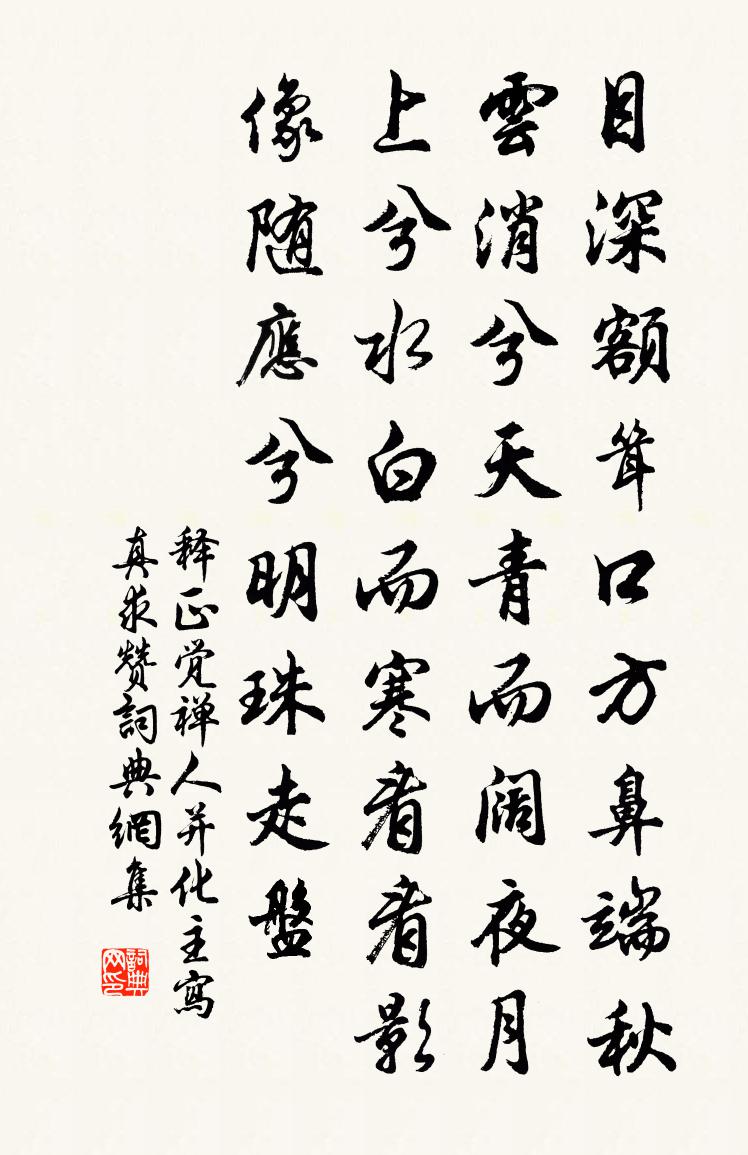 目深額耸口方鼻端秋
雲消兮天青而阔夜月
上兮水白而寒看看影
像随應兮明珠走盤
释正觉禅人并化主寫
真求赞詞典網集
詞典网印